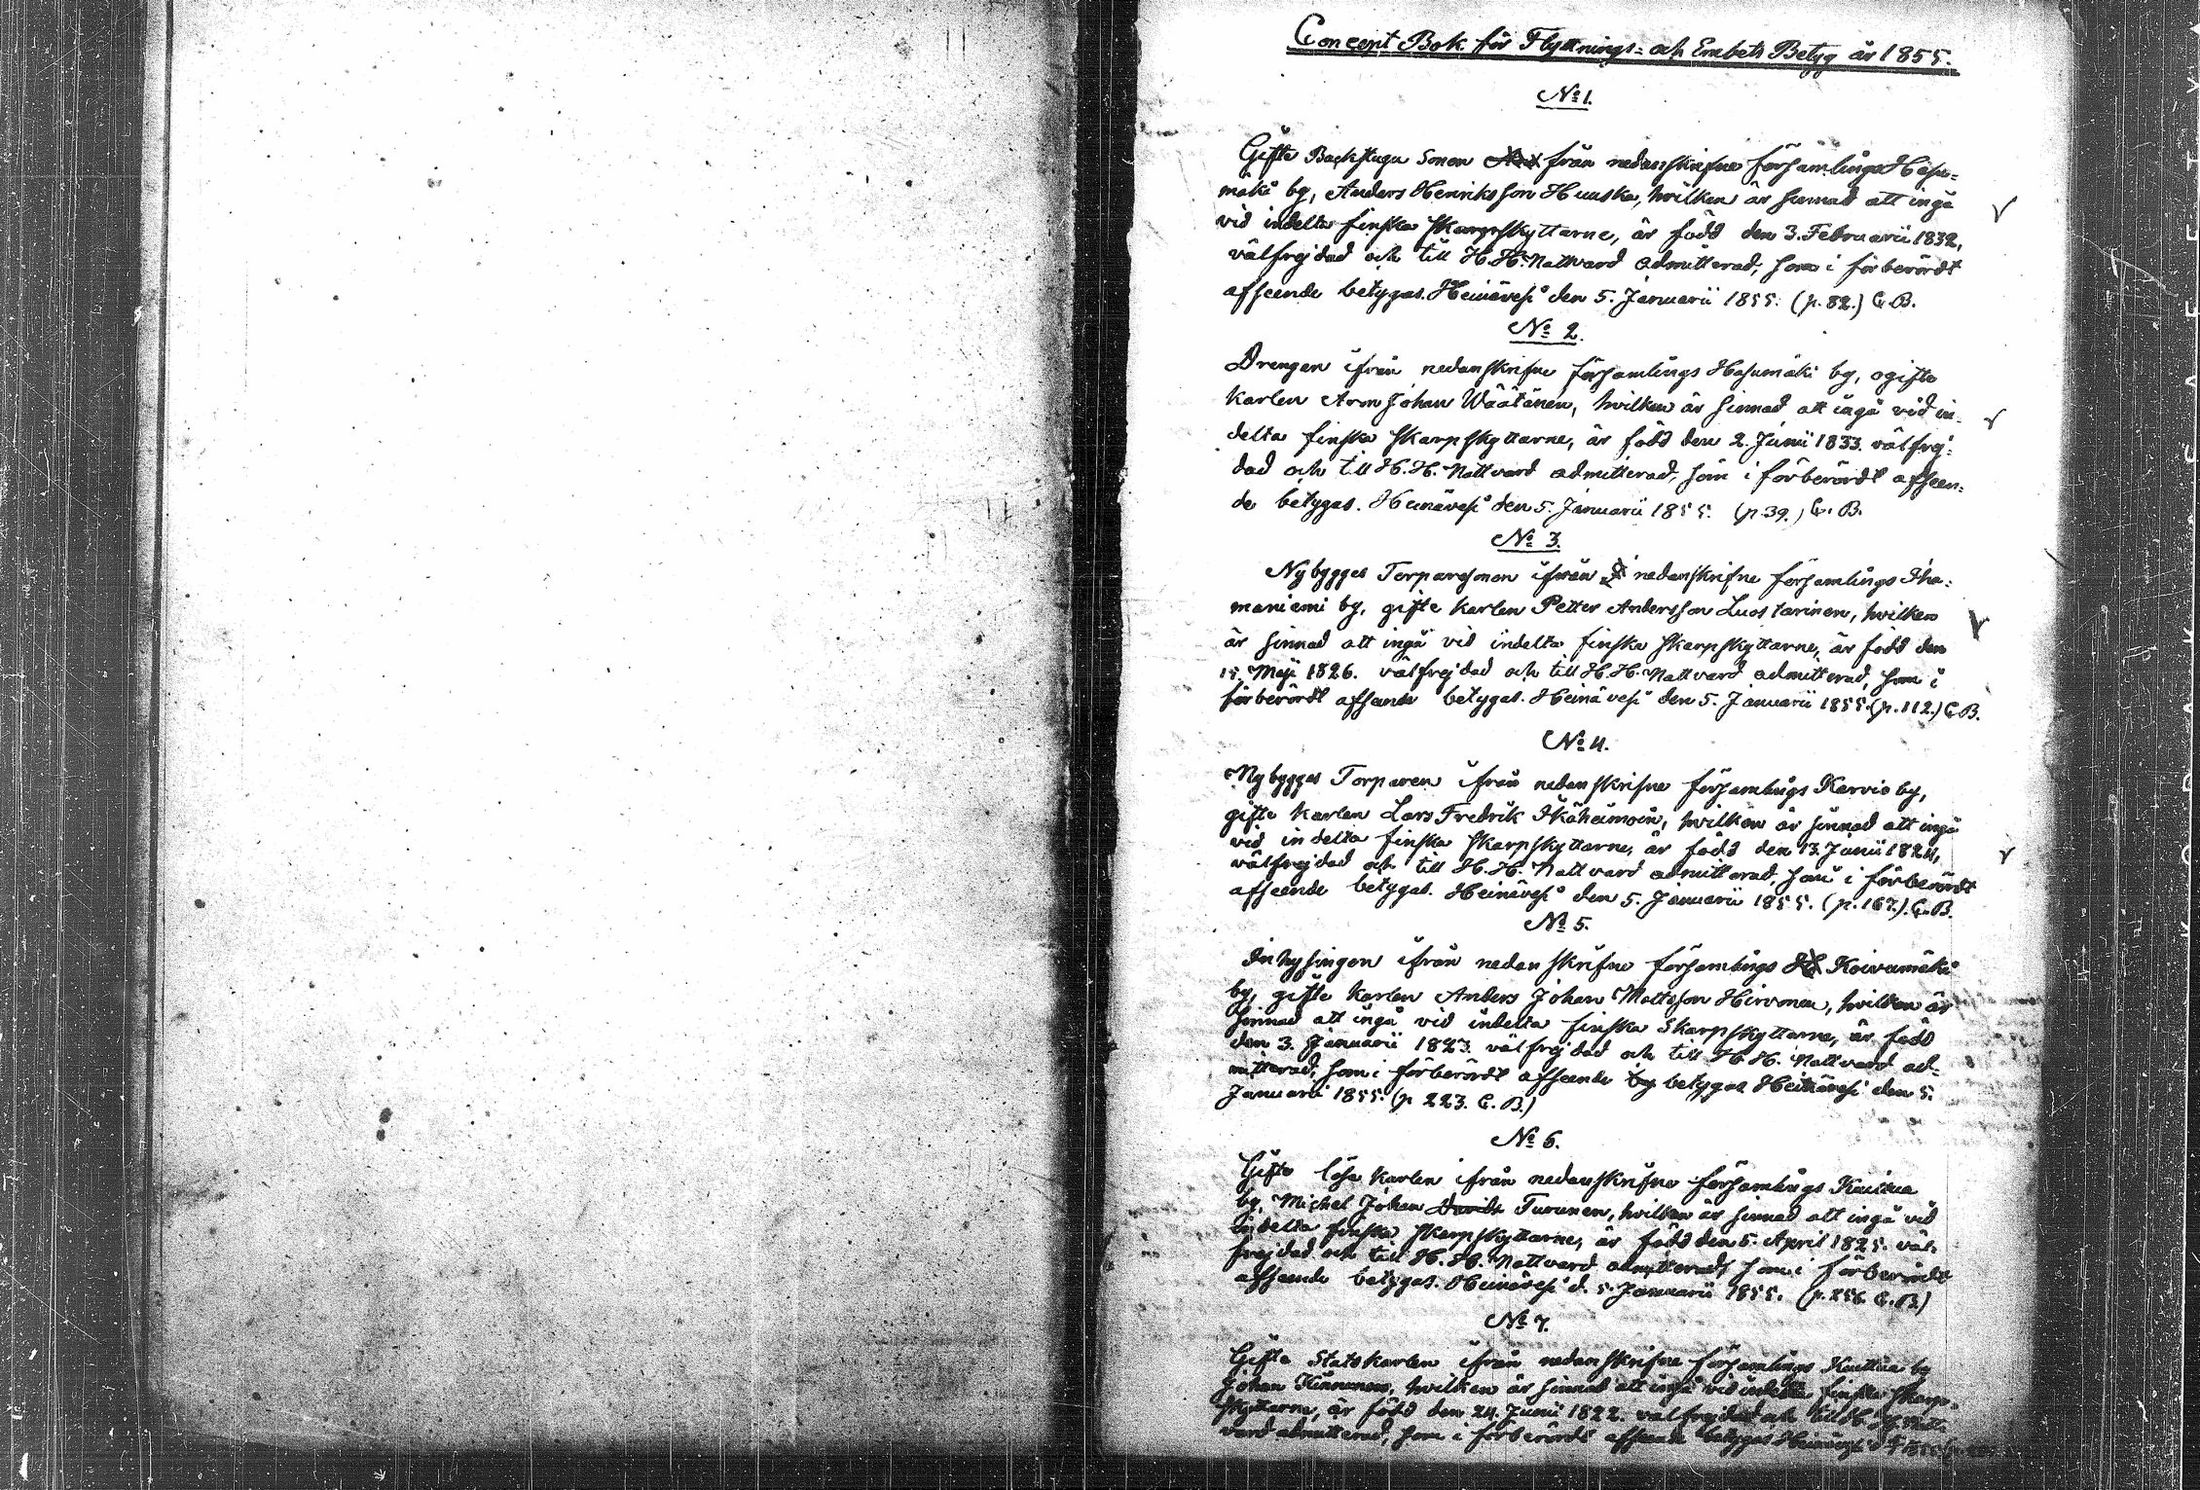 Concept Bok för Flyttnings- och Embets Betyg år 1855.
No 1.
Gifte Backstugu Sonen från nedanskrifne församlings Hasu-
mäki by, Anders Henriksson Huuska, hvilken är sinnad att ingå
vid indelta finska Skarpskyttarne, är född den 3. Februarii 1832,
välfrejdad och till H. H. Nattvard admitterad; som i förberördt
afseende betygas. Heinävesi den 5. Januarii 1855. (p. 82.) C. B.
No 2.
Drengen ifrån nedanskrifne församlings Hasumäki by, ogifte
karlen Aron Johan Wäätänen, hvilken är sinnad att ingå vid in-
delta finska Skarpskyttarne, är född den 2. Junii 1833. välfrej-
dad och till H. H. Nattvard admitterad, som i förberördt afseen-
de betygas. Heinävesi den 5. Januarii 1855. (p. 39.) C. B.
No 3.
Nybygges Torparesonen ifrån nedanskrifne församlings Iha-
maniemi by, gifte karlen Petter Andersson Luostarinen, hvilken
är sinnad att ingå vid indelta finska Skarpskyttarne, är född den
15. Maji 1826. välfrejdad och till H. H. Nattvard admitterad, som i
förberördt afseende betygas. Heinävesi den 5. Januarii 1855. (p. 112.) C. B.
No 4.
Nybygges Torparen ifrån nedanskrifne församlings Karvio by,
gifte karlen Lars Fredrik Ikäheimoin, hvilken är sinnad att ingå
vid indelta finska Skarpskyttarne, är född den 13. Junii 1824,
välfrejdad och till H. H. Nattvard admitterad, som i förberördt
afseende betygas. Heinävesi den 5. Januarii 1855. (p. 167.) C. B.
No 5.
Inhysingen ifrån nedanskrifne församlings Koivumäki
by, gifte karlen Anders Johan Mattsson Hirvonen, hvilken är
sinnad att ingå vid indelta finska Skarpskyttarne, är född
den 3. Januarii 1823. välfrejdad och till H. H. Nattvard ad-
mitterad, som i förberördt afseende betygas Heinävesi den 5.
Januarii 1855. (p 223. C. B.)
No 6.
Gifte lösa karlen ifrån nedanskrifne församlings
by, Michel Johan Turunen, hvilken är sinnad att ingå vid
indelta finska Skarpskyttarne, är född den 5. April 1825. väl-
frejdad och till H. H. Nattvard admitterad, som i förberördt
afseende betygas. Heinävesi d. 5. Januarii 1855. (p. 256. C. B.)
No 7.
Gifte Statskarlen ifrån nedanskrifne församlings by
Johan Kinnunen, hvilken är sinnad att ingå vid indelta finska Skarp-
skyttarne, är född den 24. Junii 1822. välfrejdad och till H. H. Natt-
vard admitterad, som i förberördt afseende betygas Heinävesi